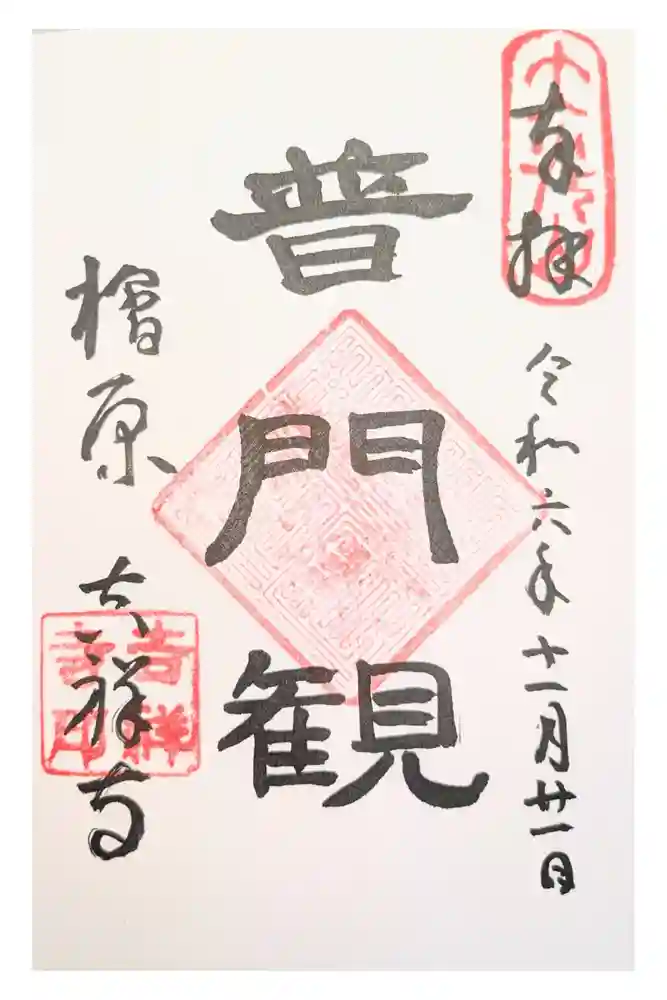 奉拝
令和六年十一月廿一日
普門観
檜原
吉祥寺
吉祥寺印